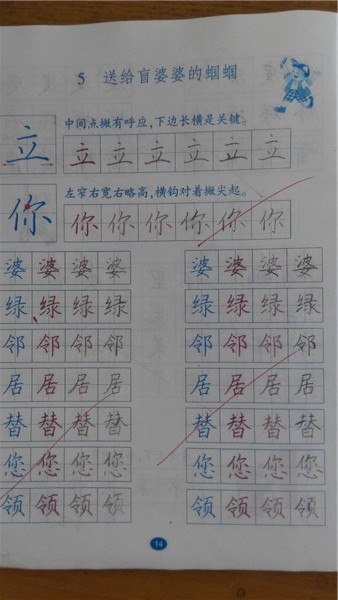 5 送给盲婆婆的蝈蝈
中间点撇有呼应，下边长横是关键。
立 立 立 立 立 立 立
左窄右宽右略高，横钩对着撇尖起。
你 你 你 你 你 你 你
婆 婆 婆 婆 婆 婆 婆 婆
绿 绿 绿 绿 绿 绿 绿 绿
邻 邻 邻 邻 邻 邻 邻 邻
居 居 居 居 居 居 居 居
替 替 替 替 替 替 替 替
您 您 您 您 您 您 您 您
领 领 领 领 领 领 领 领
14